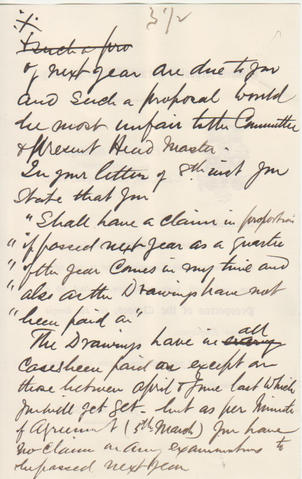 3½
such a pro
of next year are due to you
and such a proposal would
be most unfair to the Committee
& present Head Master.
In your letter of 8th inst you
state that you
"Shall have a claim in proportion
" if passed next year as a quarter
" of the year comes in my time and
" also as the Drawings have not
" been paid on"
The Drawings have in all
cases been paid on except on
those between April & June last which
you will get - but as per Minute
of Agreement (5th March) you have
no claim on any examinations to
be passed next year